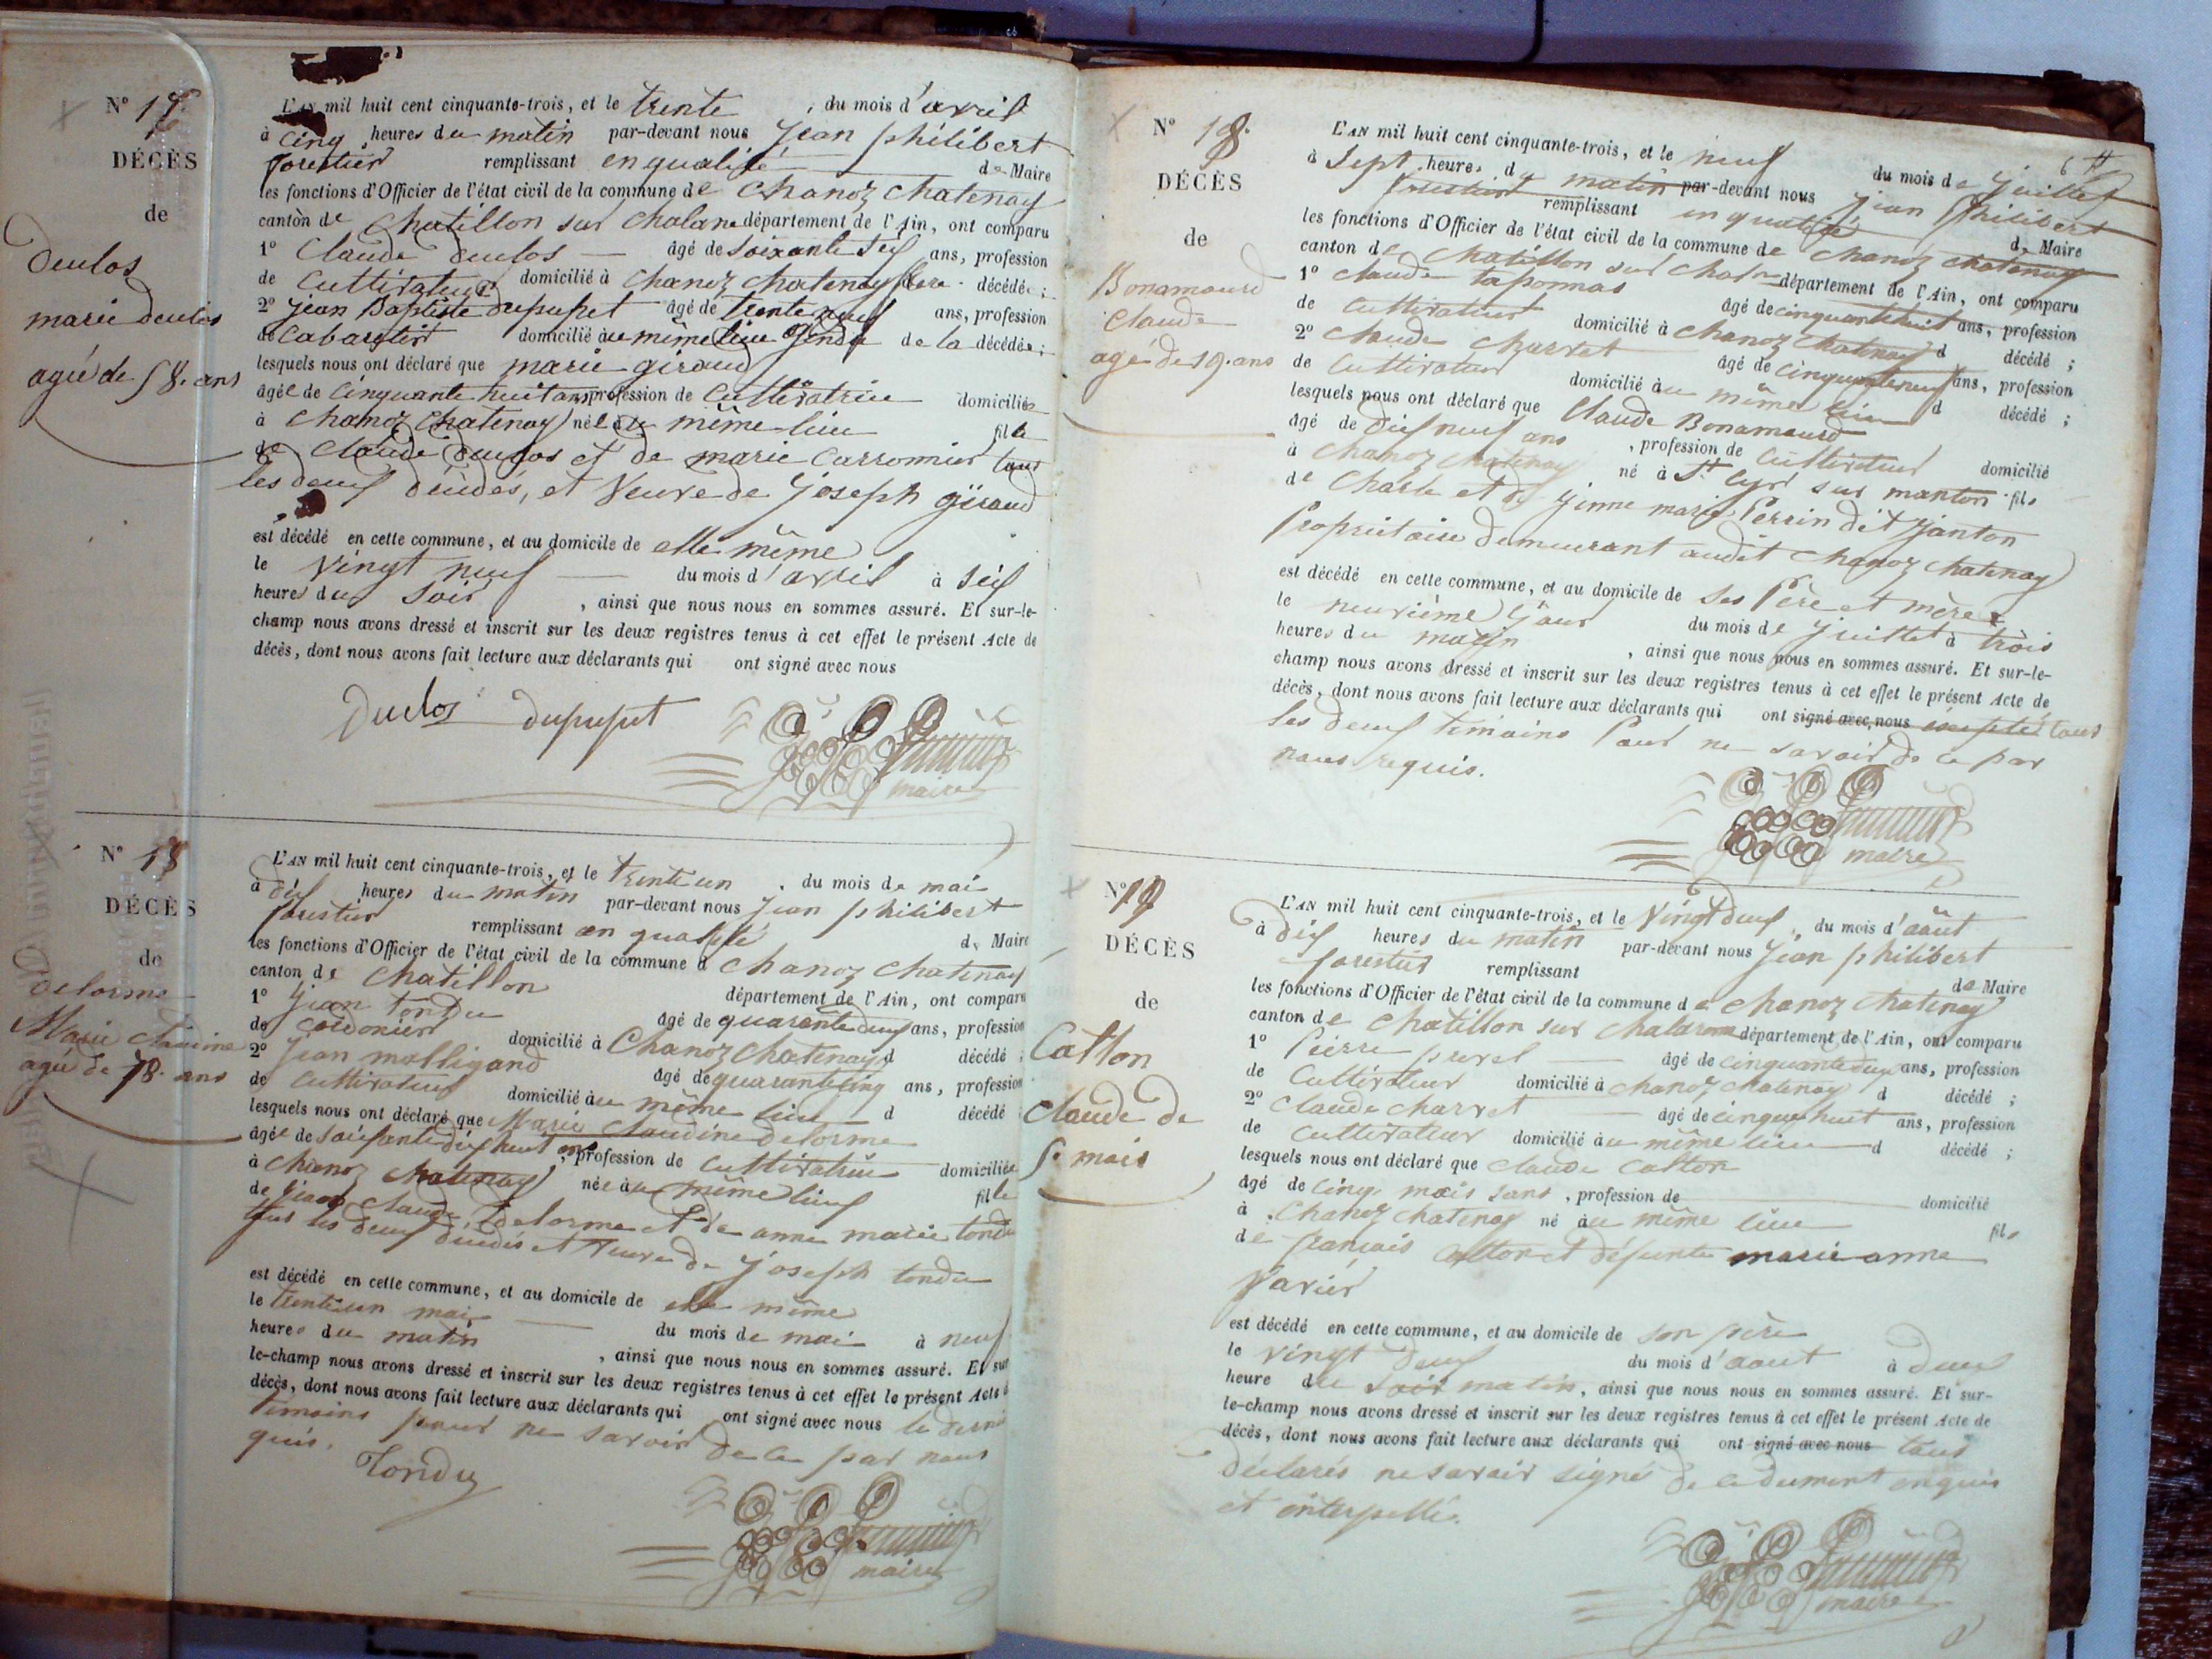 N° 17
DÉCÈS
de
duclos
marie duclos
agée de 58. ans
L'AN mil huit cent cinquante-trois, et le trente, du mois d'avril
à cinq heures du matin par-devant nous jean philibert
forestier remplissant en qualité de Maire
les fonctions d'Officier de l'état civil de la commune de chanoz chatenay
canton de chatillon sur chalarne département de l'Ain, ont comparu
1° Claude duclos âgé de soixante six ans, profession
de Cultivateur domicilié à chanoz chatenay frere décédée ;
2° jean Baptiste dupupet âgé de trente neuf ans, profession
de Cabaretier domicilié au même lieu gendre de la décédée ;
lesquels nous ont déclaré que marie giroud
âgée de cinquante huit ans profession de Cultivatrice domiciliée
à chanoz chatenay née au même lieu fille
de Claude duclos et de marie Carronnier tous
les deux décédés, et Veuve de joseph giraud
est décédé en cette commune, et au domicile de elle même
le vingt neuf du mois d'avril à six
heures du soir, ainsi que nous nous en sommes assuré. Et sur-le-
champ nous avons dressé et inscrit sur les deux registres tenus à cet effet le présent Acte de
décès, dont nous avons fait lecture aux déclarants qui ont signé avec nous
Duclos dupupet
maire
N° 18
DÉCÈS
de
delorme
Marie claudine
agée de 78. ans
L'AN mil huit cent cinquante-trois, et le trente un, du mois de mai
à dix heures du matin par-devant nous jean philibert
forestier remplissant en qualité de Maire
les fonctions d'Officier de l'état civil de la commune d chanoz chatenay
canton de chatillon département de l'Ain, ont comparu
1° jean tondu âgé de quarante deux ans, profession
de cordonier domicilié à Chanoz chatenay d décédé ;
2° jean malligand âgé de quarante cinq ans, profession
de Cultivateur domicilié au même lieu d décédé
lesquels nous ont déclaré que Marie claudine delorme
âgée de soixante dix huit ans, profession de Cultivatrice domiciliée
à chanoz chatenay née au même lieu fille
de claude delorme et de anne marie tondu
tous les deux décédés et veuve de joseph tondu
est décédé en cette commune, et au domicile de elle même
le trente un mai du mois de mai à neuf
heures du matin, ainsi que nous nous en sommes assuré. Et sur
le-champ nous avons dressé et inscrit sur les deux registres tenus à cet effet le présent Acte de
décès, dont nous avons fait lecture aux déclarants qui ont signé avec nous le dernier
temoins pour ne savoir de ce par nous
quis.
Tondu
maire
6
N° 18
DÉCÈS
de
Bonamourd
Claude
agé de 19. ans
L'AN mil huit cent cinquante-trois, et le neuf du mois de juillet
à sept heures du matin par-devant nous jean philibert
forestier remplissant en qualité de Maire
les fonctions d'Officier de l'état civil de la commune de chanoz chatenay
canton de chatillon sur chalarne département de l'Ain, ont comparu
1° claude taponnas âgé de cinquante huit ans, profession
de Cultivateur domicilié à chanoz chatenay d décédé ;
2° claude charvet âgé de cinquante neuf ans, profession
de Cultivateur domicilié au même lieu d décédé ;
lesquels nous ont déclaré que Claude Bonamourd
âgé de dix neuf ans, profession de Cultivateur domicilié
à chanoz chatenay né à St Cyr sur manton fils
de Charle et de jenne marie Perrin dit janton
Proprietaire demeurant audit chanoz chatenay
est décédé en cette commune, et au domicile de ses Père et mère
le neuvième jour du mois de juillet à trois
heures du matin, ainsi que nous nous en sommes assuré. Et sur-le-
champ nous avons dressé et inscrit sur les deux registres tenus à cet effet le présent Acte de
décès, dont nous avons fait lecture aux déclarants qui ont signé avec nous excepté tous
les deux temoins Pour ne savoir de ce par
nous requis.
maire
N° 19
DÉCÈS
de
Catton
claude de
5. mois
L'AN mil huit cent cinquante-trois, et le vingt deux, du mois d'août
à dix heures du matin par-devant nous jean philibert
forestier remplissant de Maire
les fonctions d'Officier de l'état civil de la commune de chanoz chatenay
canton de chatillon sur chalaronne département de l'Ain, ont comparu
1° Pierre prevel âgé de cinquante deux ans, profession
de Cultivateur domicilié à chanoz chatenay d décédé ;
2° claude charvet âgé de cinquen huit ans, profession
de Cultivateur domicilié au même lieu d décédé ;
lesquels nous ont déclaré que claude catton
âgé de cinq mois sans, profession de domicilié
à chanoz chatenay né au même lieu fils
de françois catton et défunte marie anne
Varier
est décédé en cette commune, et au domicile de son père
le vingt deux du mois d'aout à deux
heure du soir matin, ainsi que nous nous en sommes assuré. Et sur-
le-champ nous avons dressé et inscrit sur les deux registres tenus à cet effet le présent Acte de
décès, dont nous avons fait lecture aux déclarants qui ont signé avec nous tous
déclarés ne savoir signé de ce dument enquis
et interpellé.
maire